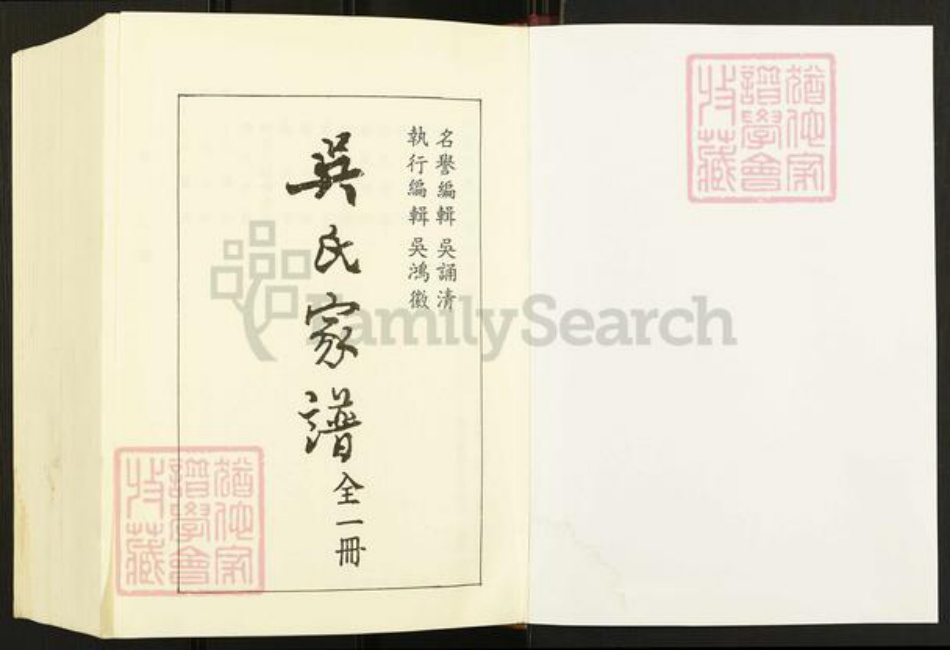 名譽編輯 吳誦清
執行編輯 吳鴻徽
吳氏家譜 全一冊
猶他家
譜學會
收藏
猶他家
譜學會
收藏
FamilySearch